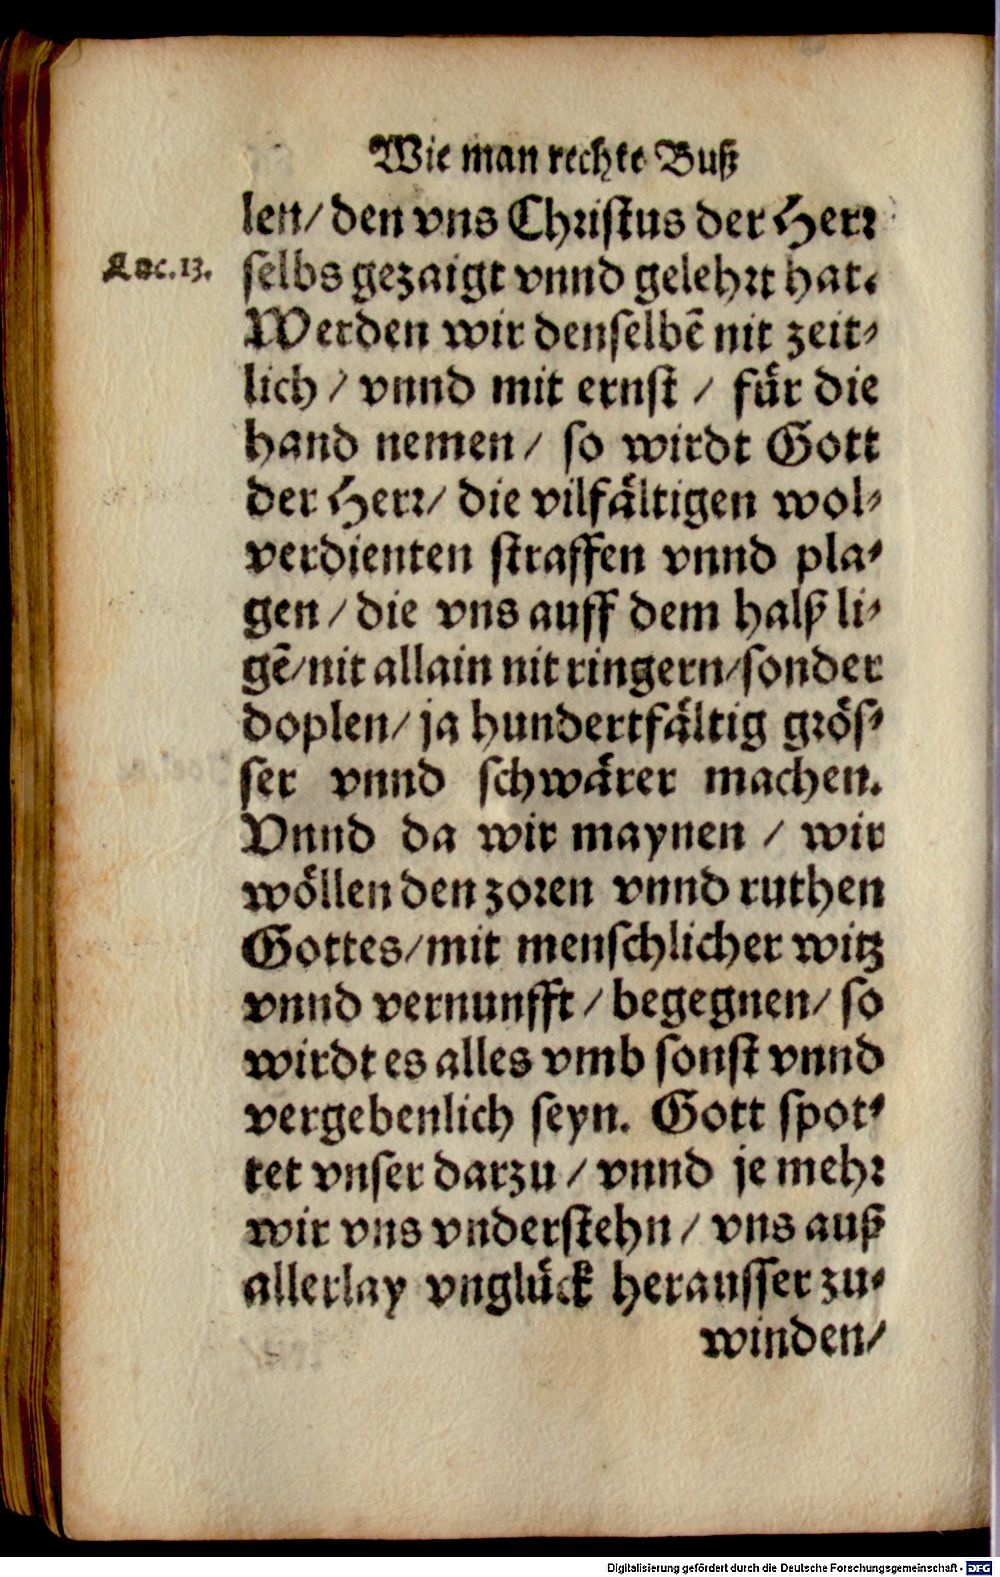 Wie man rechte Buß
len/ den vns Christus der Herr
Luc. 13.
selbs gezaigt vnnd gelehrt hat.
Werden wir denselbẽ nit zeit⸗
lich / vnnd mit ernst / fuͤr die
hand nemen / so wirdt Gott
der Herr/ die vilfaͤltigen wol⸗
verdienten straffen vnnd pla⸗
gen / die vns auff dem halß li⸗
gẽ/nit allain nit ringern/sonder
doplen/ ja hundertfaͤltig groͤs⸗
ser vnnd schwaͤrer machen.
Vnnd da wir maynen / wir
woͤllen den zoren vnnd ruthen
Gottes/mit menschlicher witz
vnnd vernunfft / begegnen/ so
wirdt es alles vmb sonst vnnd
vergebenlich seyn. Gott spot⸗
tet vnser darzu / vnnd je mehr
wir vns vnderstehn / vns auß
allerlay vngluͤck herausser zu⸗
winden/
Digitalisierung gefördert durch die Deutsche Forschungsgemeinschaft - DFG